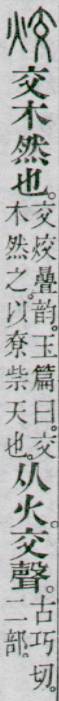 烄交木然也。交烄疊韵。玉篇曰。交木然之。以尞柴天也。从火。交聲。古巧切。二部。